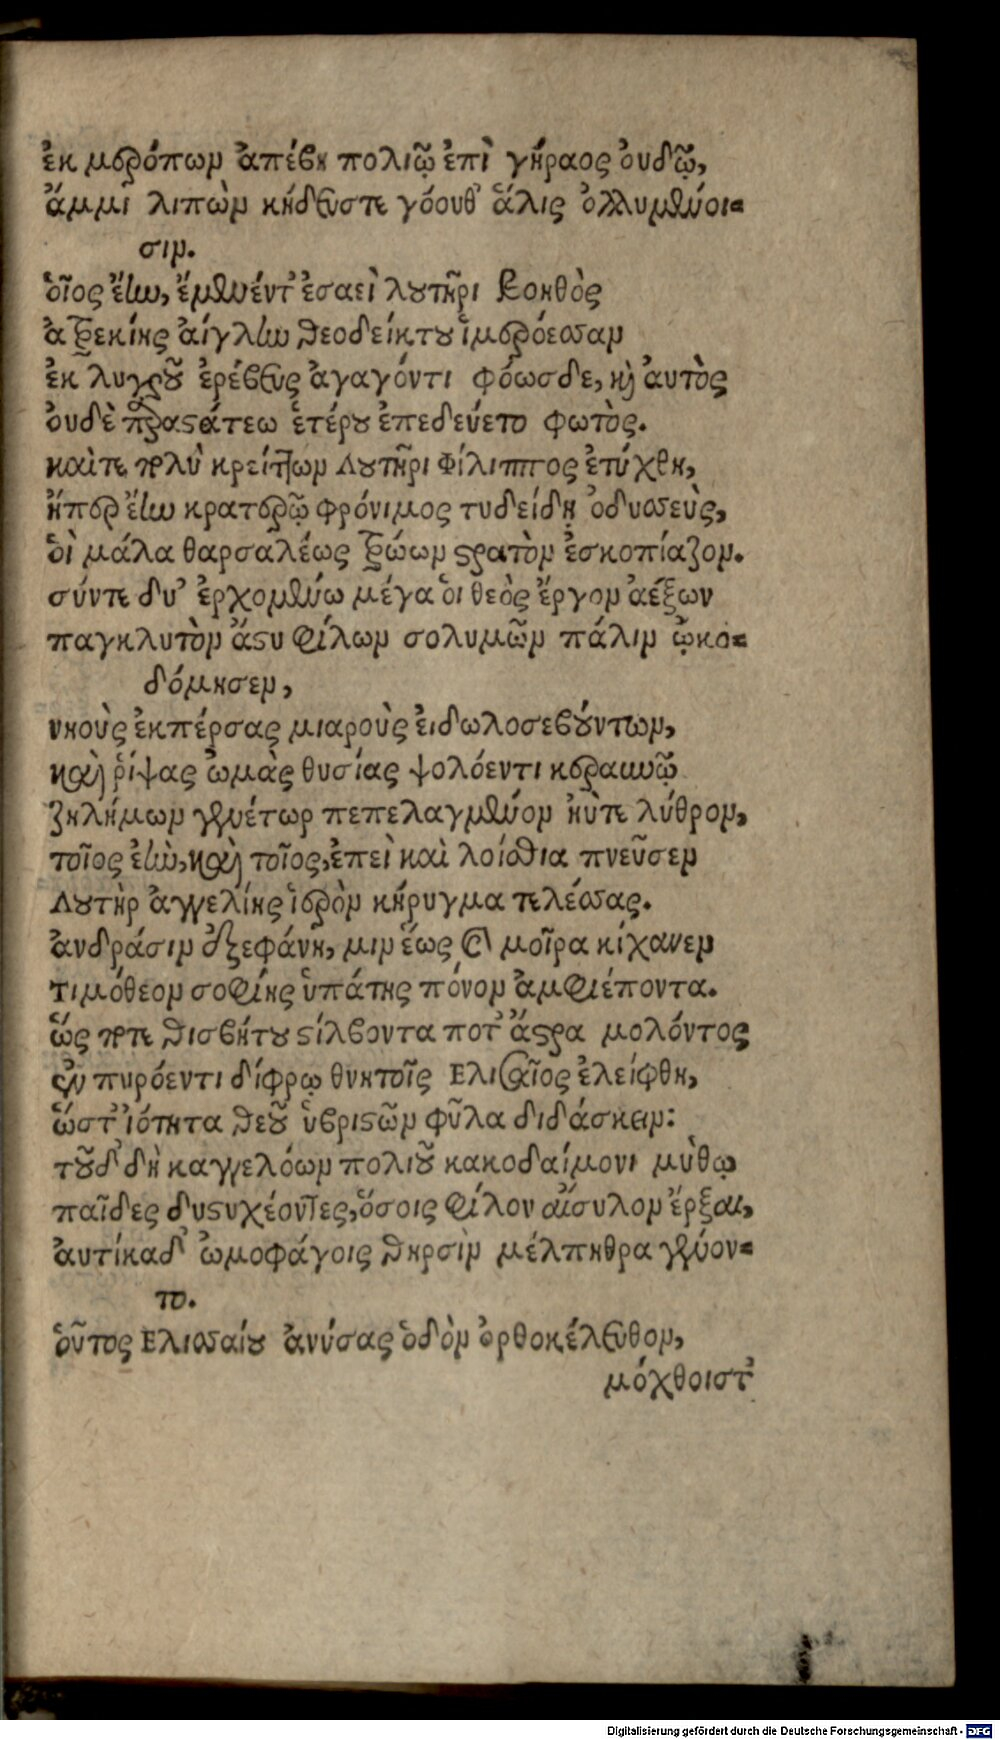 ἐκ μερόπων ἀπέβη πολιῷ ἐπὶ γήραος ὀυδῷ,
ἄμμι λιπὼν κήδευστε γόουθ' ἅλις ὀλλυμένοι=
σιν.
ὁῖος ἔην, ἔμεναι ἐντ' ἐσαεὶ λουτῆρι βοηθὸς
ἀτρεκίης αἴγλην θεοδείκτου ἱμερόεσσαν
ἐκ λυγροῦ ἐρέβευς ἀγαγόντι φόωσδε, καὶ ἀυτὸς
ὀυδὲ παραστάτεω ἑτέρου ἐπεδεύετο φωτὸς.
καὶτε πολὺ κρείττων Λουτῆρι Φίλιππος ἐτύχθη,
ἤπερ ἔην κρατερῷ φρόνιμος τυδείδῃ ὀδυσσεὺς,
ὁὶ μάλα θαρσαλέως τρώων στρατὸν ἐσκοπίαζον.
σύντε δυ' ἐρχομένω μέγα ὁι θεὸς ἔργον ἀέξων
παγκλυτὸν ἄστυ φίλων σολυμῶν πάλιν ᾠκο=
δόμησεν,
νηοὺς ἐκπέρσας μιαροὺς ἐιδωλοσεβούντων,
καὶ ῥίψας ὠμὰς θυσίας ψολόεντι κεραυνῷ
ζηλήμων γενέτωρ πεπελαγμένον ἠύτε λύθρον,
τοῖος ἐὼν, καὶ τοῖος, ἐπεὶ καὶ λοίσθια πνεῦσεν
Λουτὴρ ἀγγελίης ἱερὸν κήρυγμα τελέσσας.
ἀνδράσιν ἐξεφάνη, μιν ἕως μοῖρα κίχανεν
τιμόθεον σοφίης ὑπάτης πόνον ἀμφιέποντα.
ὥς ποτε θισβήτου στίλβοντα ποτ' ἄστρα μολόντος
ἐν πυρόεντι δίφρῳ θνητοῖς Ελισσαῖος ἐλείφθη,
ὥστ' ἰότητα θεοῦ ὑβριστῶν φῦλα διδάσκειν:
τοῦδ' δὴ καγγελόων πολιοῦ κακοδαίμονι μύθῳ
παῖδες δυστυχέοντες, ὅσοις φίλον ἀίσυλον ἔρξαι,
ἀυτίκαδ' ὠμοφάγοις θηρσὶν μέλπηθρα γένον=
το.
ὁῦτος Ελισσαίου ἀνύσας ὁδὸν ὀρθοκέλευθον,
μόχθοιστ'
Digitalisierung gefördert durch die Deutsche Forschungsgemeinschaft - DFG